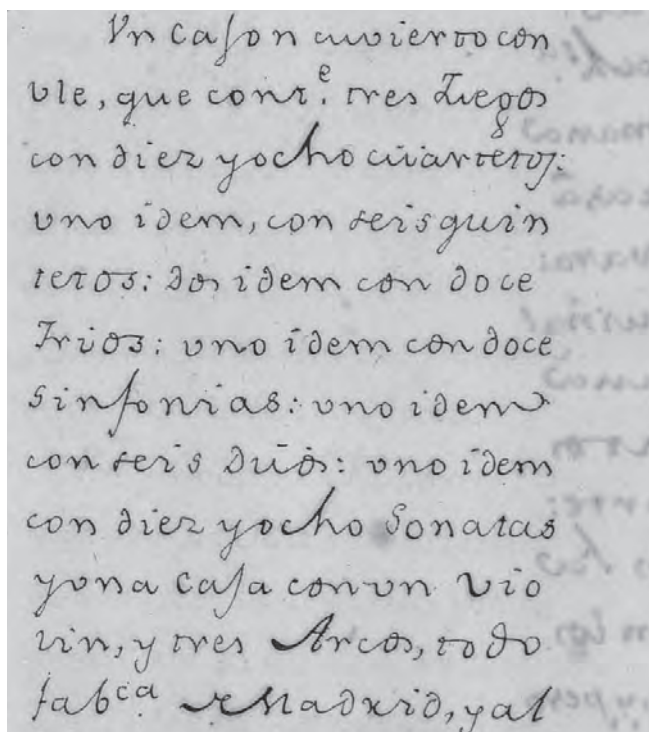 Vn Cajon cuvierto con
vle, que cont.e tres Liegos
con diez yocho cüartetos:
vno idem, con seis quin
tetos: dos idem con doce
Trios: vno idem con doce
sinfonias: vno idem
con seis Düos: vno idem
con diez yocho Sonatas
yvna Caja con vn Vio
lin, y tres Arcos, todo
fabca. Madrid, y al